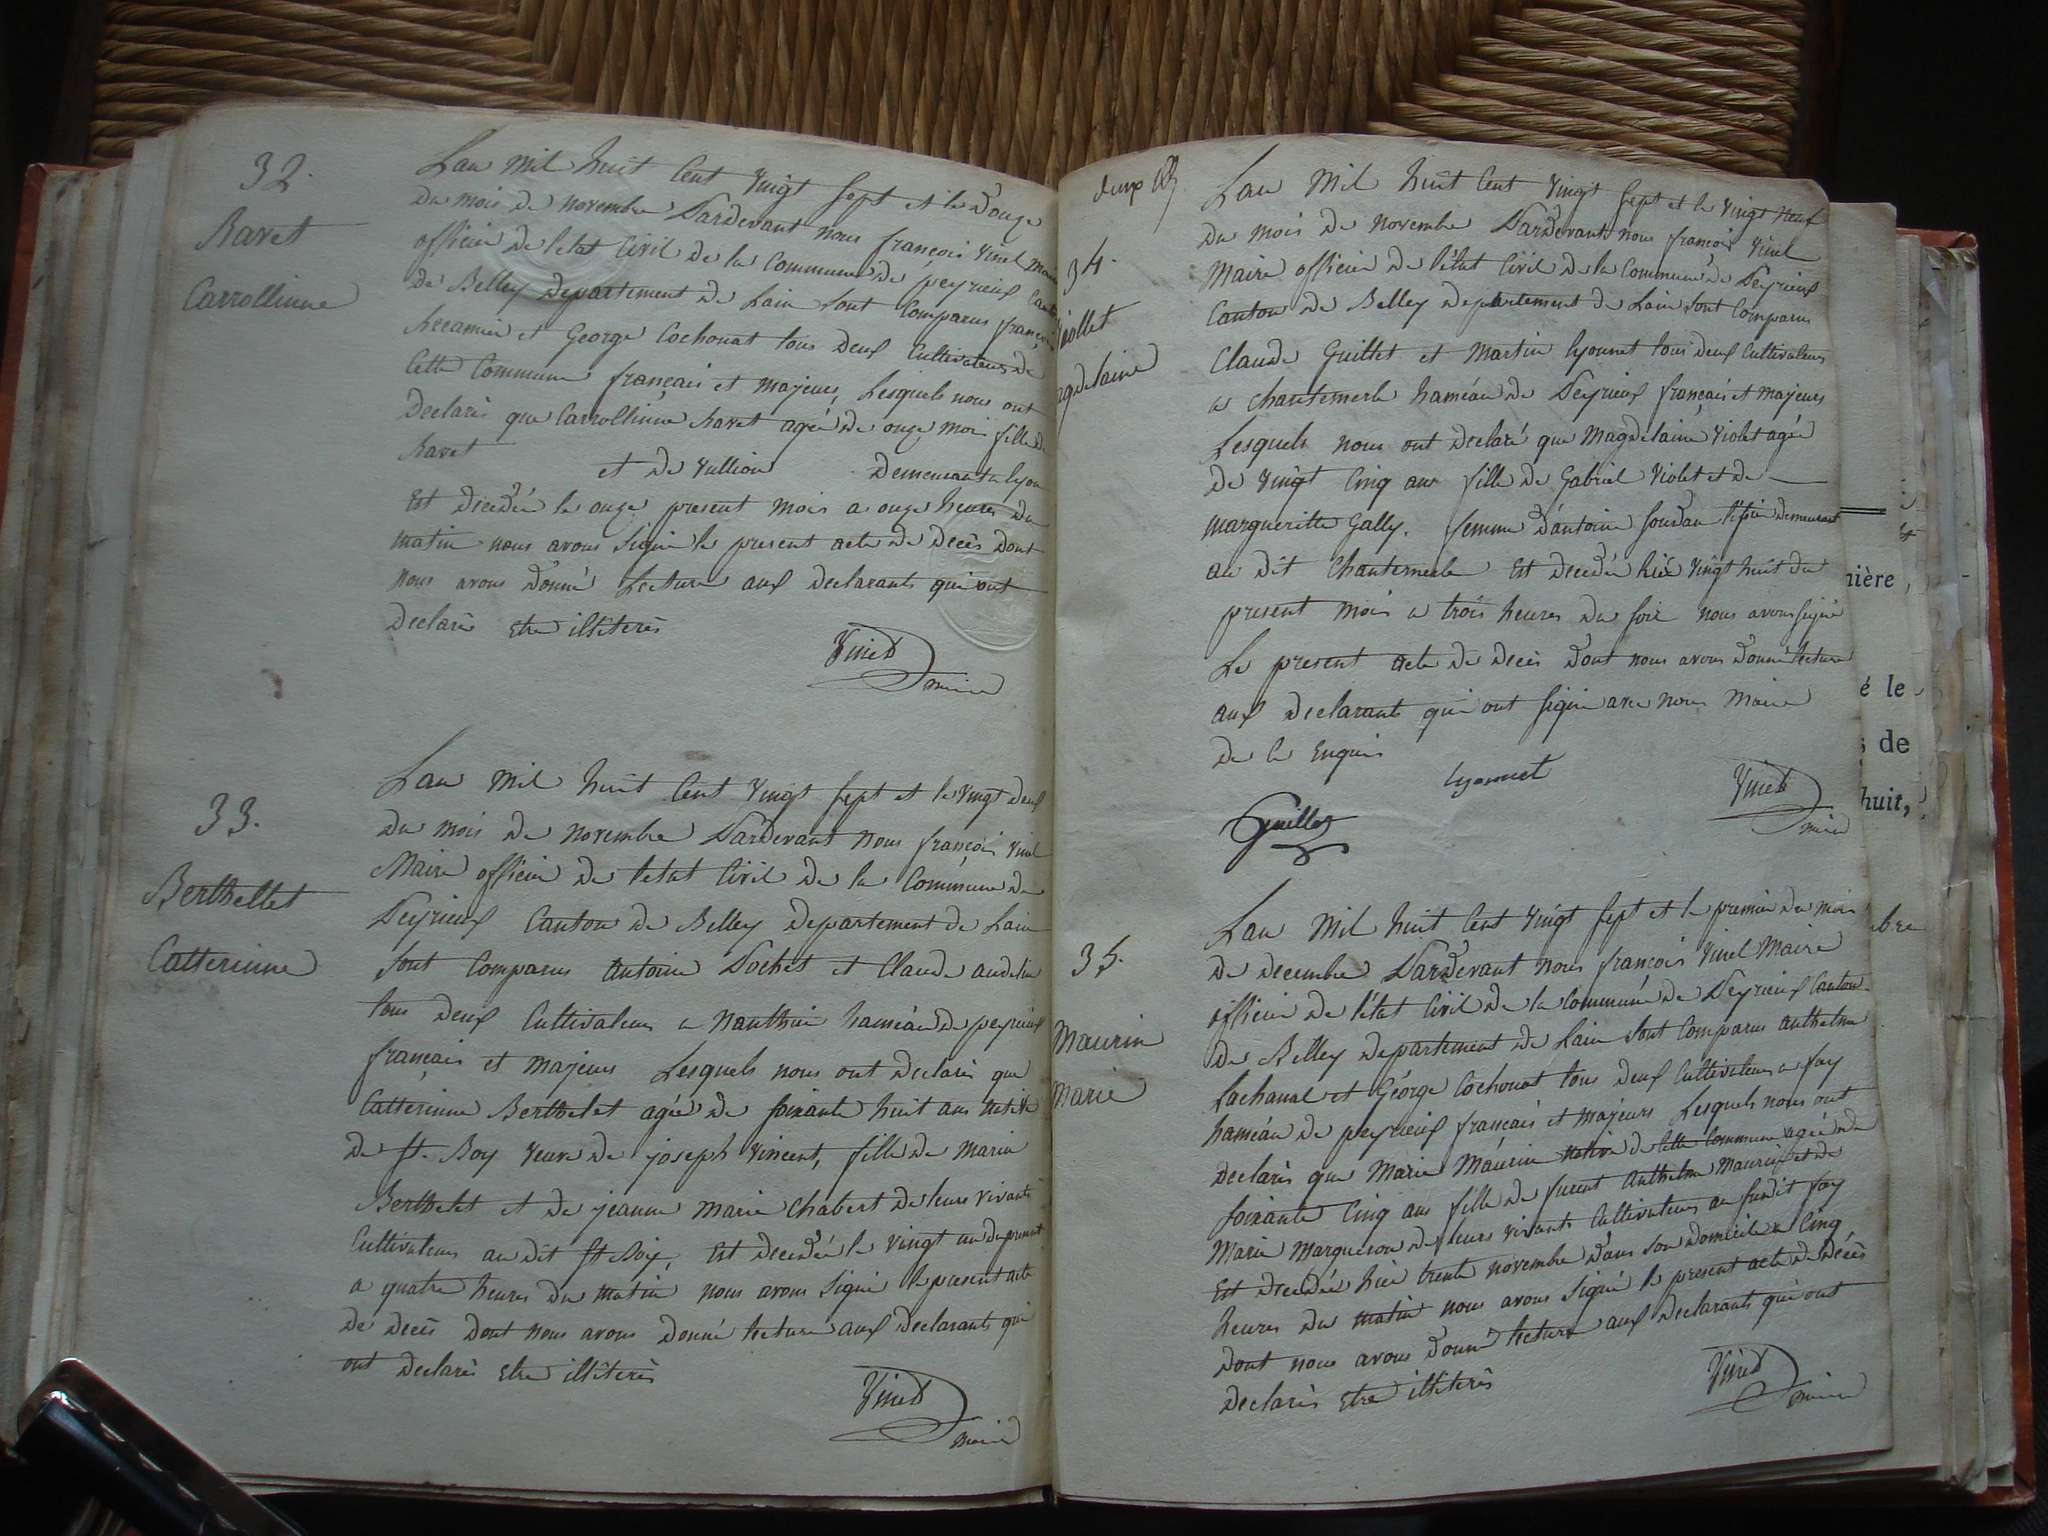 32.
Ravet
Carrollinne
Lan mil huit Cent vingt sept et le Douze
Du mois de novembre Pardevant nous françois Vinet Maire
officier de letat Civil de la Commune de peyrieux Canton
de Belley Departement de Lain sont Comparus françois
Recamier et George Cochonat tous deux Cultivateurs de
Cette Commune francais et majeurs, Lesquels nous ont
Declarés que Carrollinne Ravet agée de onze mois fille de
Ravet et de Vullion demeurant a lyon
Est decedée le onze present mois a onze heures du
matin nous avons signé le present acte de decès dont
nous avons donné Lecture aux declarants qui ont
Declarés etre illiterés
Vinet
maire
33.
Berthellet
Catterinne
Lan mil huit Cent vingt sept et le vingt deux
Du mois de novembre Pardevant nous françois Vinet
Maire officier de letat Civil de la Commune de
Peyrieux Canton de Belley departement de Lain
sont Comparus antoine Pochet et Claude
tous deux Cultivateurs a Nanthuis haméau de peyrieux
français et majeurs Lesquels nous ont declarés que
Catterinne Berthelet agée de soixante huit ans native
de St. Boy veuve de joseph Vincent, fille de marin
Berthelet et de jeanne marie Chabert de leurs vivants
Cultivateurs au dit St Boix, Est decedée le vingt un du present
a quatre heures du matin nous avons signé le present acte
de decès dont nous avons donné lecture aux declarants qui
ont declarés etre illiterés
Vinet
maire
34.
iollet
agdelaine
Lan mil huit Cent vingt sept et le vingt neuf
Du mois de novembre Pardevant nous françois Vinet
Maire officier de létat Civil de la Commune de Peyrieux
Canton de Belley departement de Lain sont Comparus
Claude Guillet et Martin lyonnet tous deux Cultivateurs
a chantemerle haméau de Peyrieux français et majeurs
Lesquels nous ont declaré que Magdelaine Violet agée
de vingt Cinq ans fille de Gabriel Violet et de
margueritte Gally. femme dantoine demeurant
au dit Chantemerle Est decedée hier vingt huit du
present mois a trois heures du soir nous avons signé
Le present acte de decès dont nous avons donné lecture
aux declarants qui ont signé avec nous Maire
de ce Enquis
lyonnet
Guillet
Vinet
maire
35.
Maurin
Marie
Lan mil huit Cent vingt sept et le premier du mois
de decembre Pardevant nous françois Vinet Maire
officier de létat Civil de la Commune de Peyrieux Canton
de Belley departement de Lain sont Comparus anthelme
Lachanal et George Cochonat tous deux Cultivateurs a fay
haméau de peyrieux francais et majeurs Lesquels nous ont
declarés que Marie Maurin native de Cette Commune agée de
soixante Cinq ans fille de furent Anthelme Maurin et de
Marie Margueron de leurs vivants Cultivateurs au susdit fay
Est decedée hier trente novembre dans son domicile a Cinq
heures du matin nous avons signé le present acte de décès
dont nous avons donné lecture aux declarants qui ont
declarés etre illiterés
Vinet
maire
nière,
é le
s de
huit,
bre